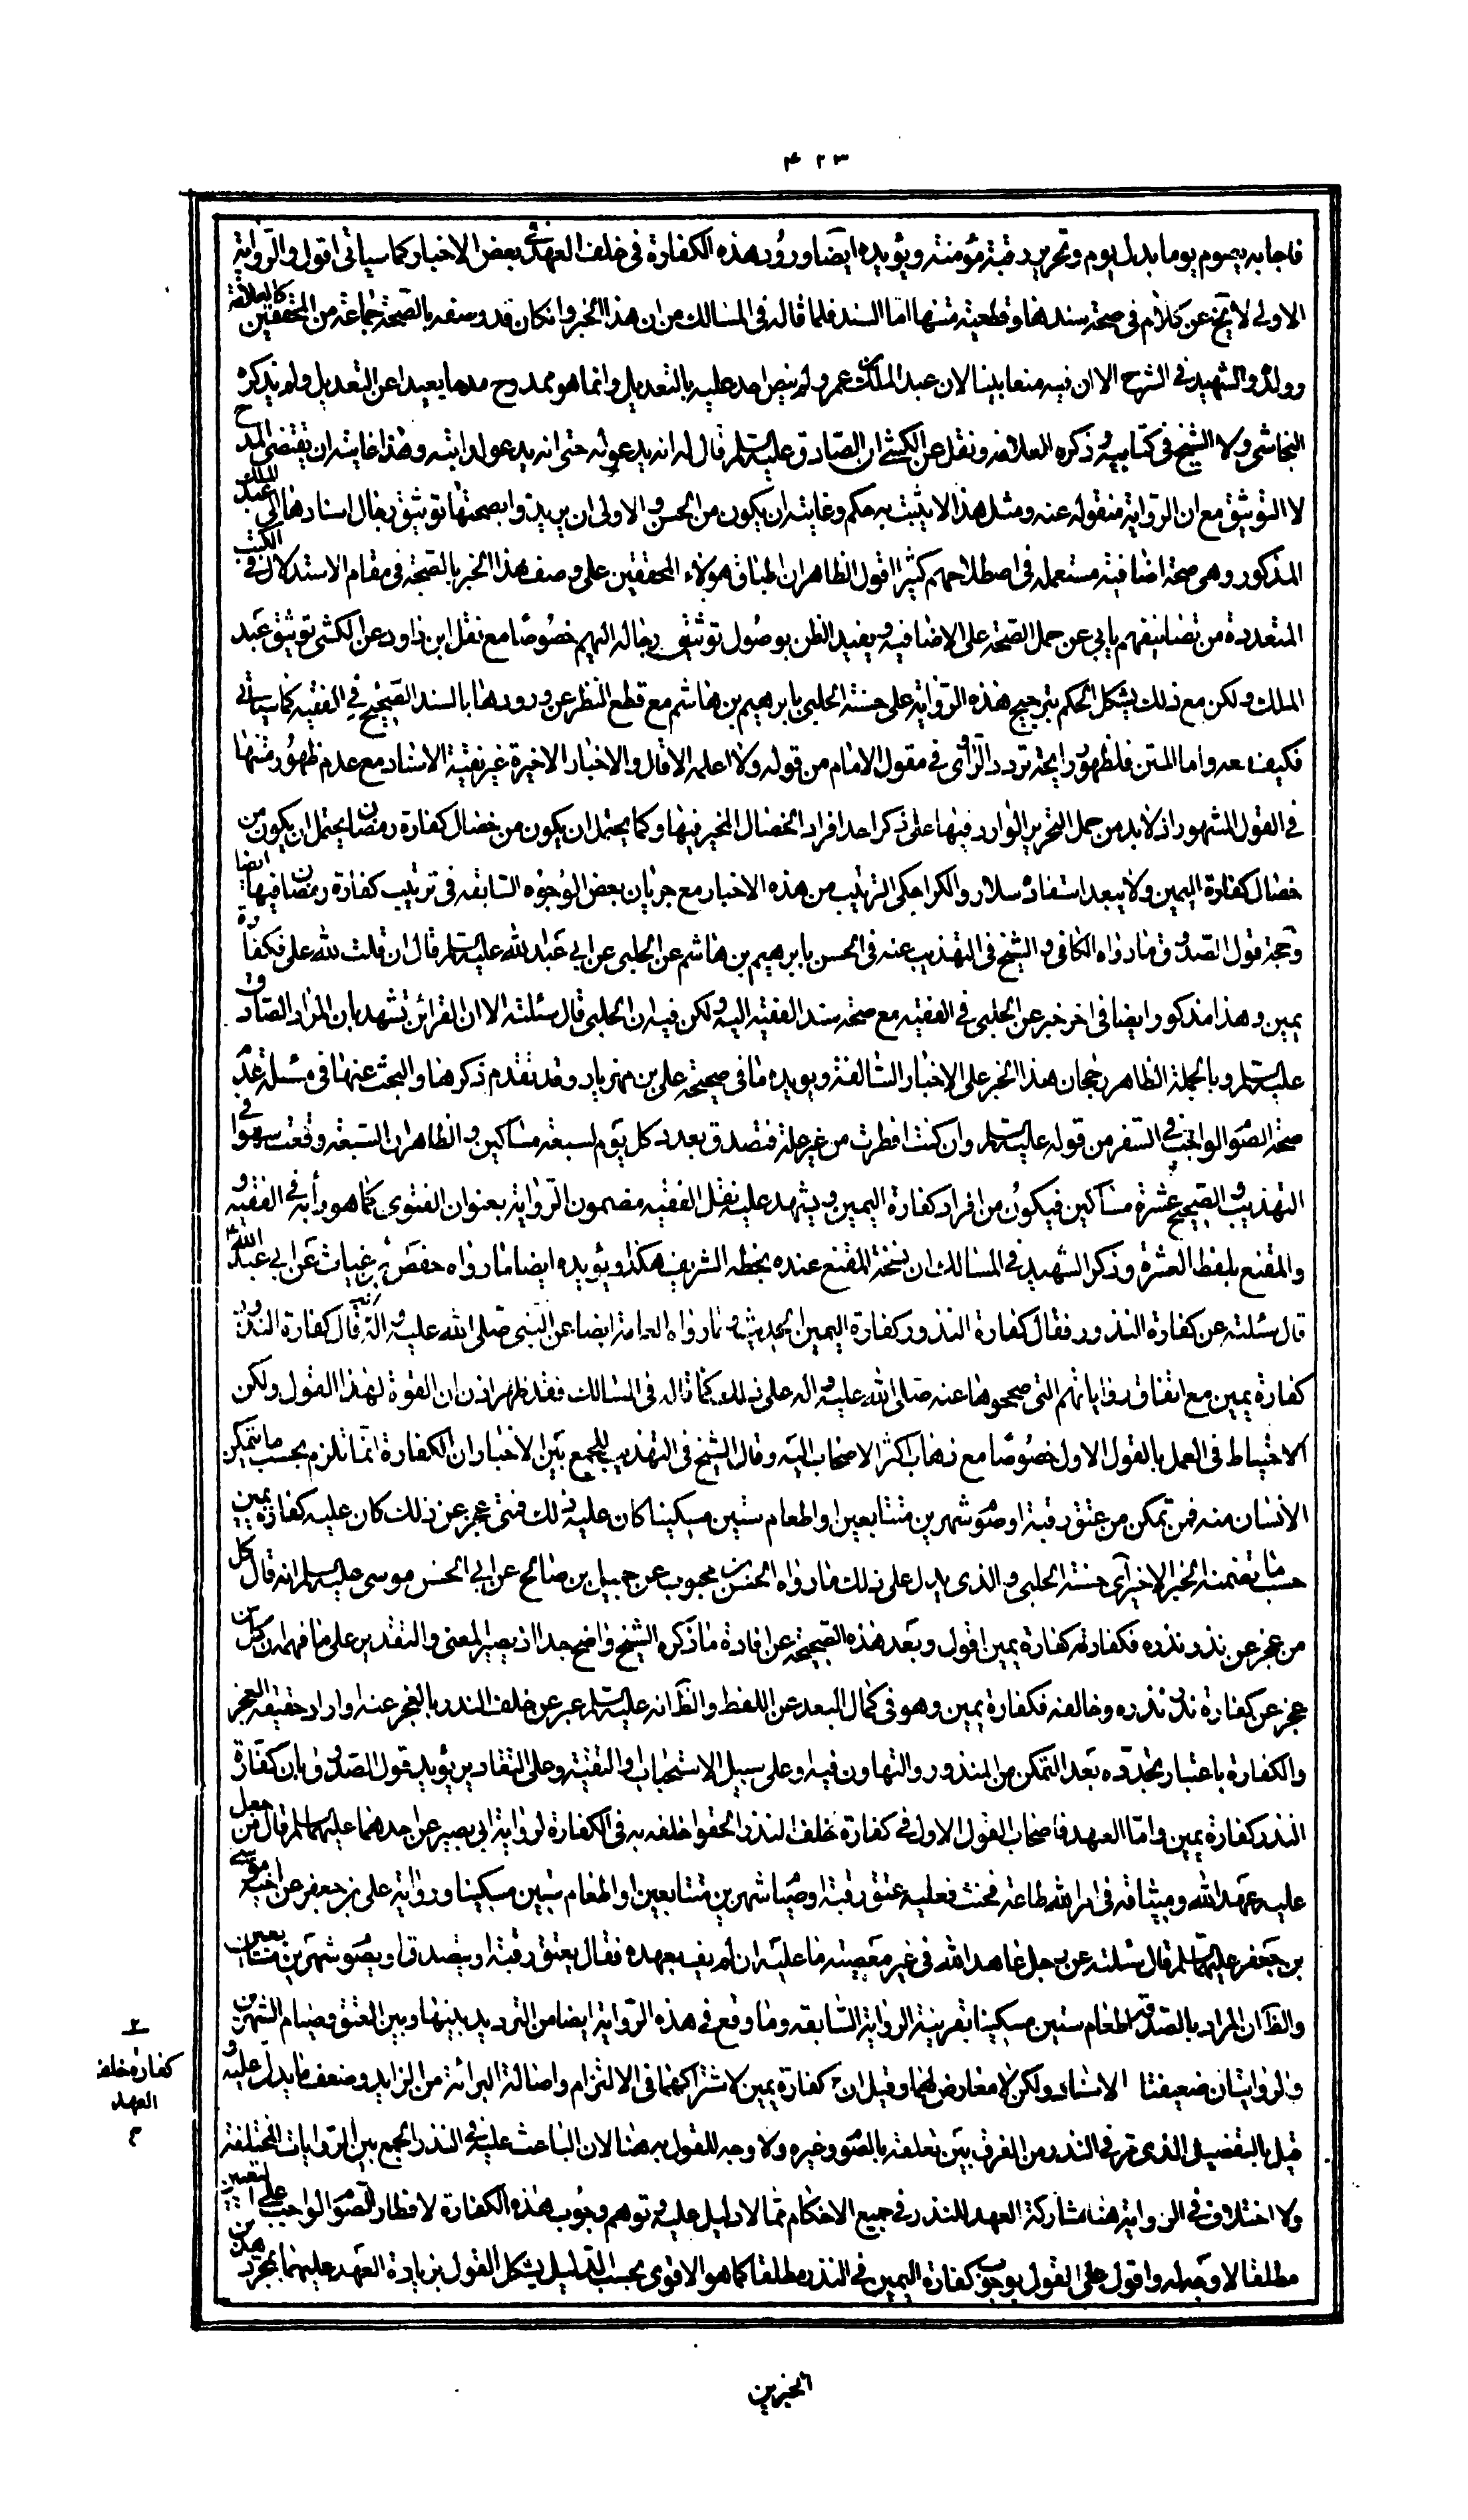 ۴۲۳
فاجابه يصوم يوما بدل يوم وتحرير رقبة مؤمنة ويؤيده ايضا ورود هذه الكفارة في خلف العهد في بعض الاخبار كما سياتي اقول والرواية
الاولى لا تخ عن كلام في صحة سندها وقطعية متنها اما السند فلما قاله في المسالك من ان هذا الخبر وانكان قد وصفه بالصحة جماعة من المحققين كالعلامة
وولده والشهيد في الشرح الا ان فيه منعا بينا لان عبد الملك بن عمرو لم ينص احد عليه بالتعديل وانما هو ممدوح مدحا بعيدا عن التعديل ولم يذكره
النجاشي ولا الشيخ في كتابيه وذكره العلامة ونقل عن الكشي ان الصادق عليه السلم قال له انه يدعو له حتى انه يدعو لدابته وهذا غايته ان يقتضي المدح
لا التوثيق مع ان الرواية منقولة عنه ومثل هذا لا يثبت به حكم وغايته ان يكون من الحسن والاولى ان يريدوا بصحتها توثيق رجال اسنادها الى عبد الملك
المذكور وهي صحة اضافية مستعملة في اصطلاحهم كثيرا اقول الظاهر ان اطباق هولاء المحققين على وصف هذا الخبر بالصحة في مقام الاستدلال في الكتب
المتعددة من تصانيفهم يابى عن حمل الصحة على الاضافية ويفيد الظن بوصول توثيق رجاله اليهم خصوصا مع نقل ابن داود عن الكشي توثيق عبد
الملك ولكن مع ذلك يشكل الحكم بترجيح هذه الرواية على حسنة الحلبي بابرهيم بن هاشم مع قطع النظر عن ورودها بالسند الصحيح في الفقيه كما سياتي
فكيف معه واما المتن فلظهور رايحة تردد الراوي في مقول الامام من قوله ولا اعلمه الا قال والاخبار الاخيرة غير نقية الاسناد مع عدم ظهور متنها
في القول المشهور اذ لا بد من حمل التحرير الوارد فيها على ذكر احد افراد الخصال المخير فيها وكما يحتمل ان يكون من خصال كفارة رمضان يحتمل ان يكون من
خصال كفارة اليمين ولا يبعد استفادة سلار والكراجكي الترتيب من هذه الاخبار مع جريان بعض الوجوه السابقة في ترتيب كفارة رمضان فيها ايضا
وحجة قول الصدوق ما رواه الكافي والشيخ في التهذيب عنه في الحسن بابرهيم بن هاشم عن الحلبي عن ابي عبد الله عليه السلم قال ان قلت لله على فكفارة
يمين وهذا مذكور ايضا في اخر خبر عن الحلبي في الفقيه مع صحة سند الفقيه اليه ولكن فيه ان الحلبي قال سئلته الا ان القرائن تشهد بان المراد الصادق
عليه السلم وبالجملة الظاهر رجحان هذا الخبر على الاخبار السالفة ويويده ما في صحيحة علي بن مهزيار وقد تقدم ذكرها والبحث عنها في مسئلة عدم
صحة الصوم الواجب في السفر من قوله عليه السلم وان كنت افطرت من غير علة فتصدق بعدد كل يوم لسبعة مساكين والظاهر ان السبعة وقعت سهوا في
التهذيب والصحيح عشرة مساكين فيكون من افراد كفارة اليمين ويشهد عليه نقل الفقيه مضمون الرواية بعنوان الفتوى كما هو دأبه في الفقيه و
والمقنع بلفظ العشرة وذكر الشهيد في المسالك ان نسخة المقنع عنده بخطه الشريف هكذا ويؤيده ايضا ما رواه حفص بن غياث عن ابي عبد الله ع
قال سئلته عن كفارة النذور فقال كفارة النذور كفارة اليمين الحديث وما رواه العامة ايضا عن النبي صلى الله عليه واله انه قال كفارة النذور
كفارة يمين مع اتفاق رواياتهم التي صححوها عنه صلى الله عليه واله على ذلك كما قاله في المسالك فقد ظهر اذن ان القوة لهذا القول ولكن
الاحتياط في العمل بالقول الاول خصوصا مع ذهاب اكثر الاصحاب اليه وقال الشيخ في التهذيب للجمع بين الاخبار ان الكفارة انما تلزم بحسب ما يتمكن
الانسان منه فمن تمكن من عتق رقبة او صوم شهرين متتابعين او اطعام ستين مسكينا كان عليه ذلك فمتى عجز عن ذلك كان عليه كفارة يمين
حسب ما تضمنه الخبر الاخير اى حسنة الحلبي والذى يدل على ذلك ما رواه الحسن بن محبوب عن جميل بن صالح عن ابي الحسن موسى عليه السلم انه قال كل
من عجز عن نذر نذره فكفارته كفارة يمين اقول وبعد هذه الصحيحة عن افادة ما ذكره الشيخ واضح جدا اذ يصير المعنى والتقدير على ما فهمه ان كل من
عجز عن كفارة نذر نذره وخالفه فكفارة يمين وهو في كمال البعد عن اللفظ والظ انه عليه السلم عبر عن خلف النذر بالعجز عنه او اراد حقيقة العجز
والكفارة باعتبار تجدده بعد التمكن من المنذور والتهاون فيه او على سبيل الاستحباب والتقية وعلى التقادير يؤيد قول الصدوق بان كفارة
النذر كفارة يمين واما العهد فاصحاب القول الاول في كفارة خلف النذر الحقوا خلفه به في الكفارة لرواية ابي بصير عن احدهما عليهما السلم قال من جعل
عليه عهد الله وميثاقه في امر لله طاعة فحنث فعليه عتق رقبة او صيام شهرين متتابعين او اطعام ستين مسكينا ورواية علي بن جعفر عن اخيه موسى
بن جعفر عليهما السلم قال سئلته عن رجل عاهد الله في غير معصية ما عليه ان لم يف بعهده فقال يعتق رقبة او يتصدق او يصوم شهرين متتابعين
والظ ان المراد بالصدقة اطعام ستين مسكينا بقرينة الرواية السابقة وما وقع في هذه الرواية ايضا من الترديد بينها وبين العتق وصيام الشهرين
والروايتان ضعيفتا الاسناد ولكن لا معارض لهما وقيل ان كفارة يمين لاشتراكهما في الالتزام واصالة البرائة من الزايد وضعف ما يدل عليه و
قيل بالتفصيل الذى مر في النذر من الفرق بين تعلقه بالصوم وغيره ولا وجه للقول به هنا لان الباعث عليه في النذر الجمع بين الروايات المختلفة
ولا اختلاف في الرواية هنا ومشاركة العهد للنذر في جميع الاحكام مما لا دليل عليه وتوهم وجوب هذه الكفارة لافطار الصوم الواجب على التعيين
مطلقا لا وجه له واقول على القول بوجوب كفارة اليمين في النذر مطلقا كما هو الاقوى بحسب الدليل يشكل القول بزيادة العهد عليهما بمجرد هذين
كفارة خلف
العهد
الخبرين